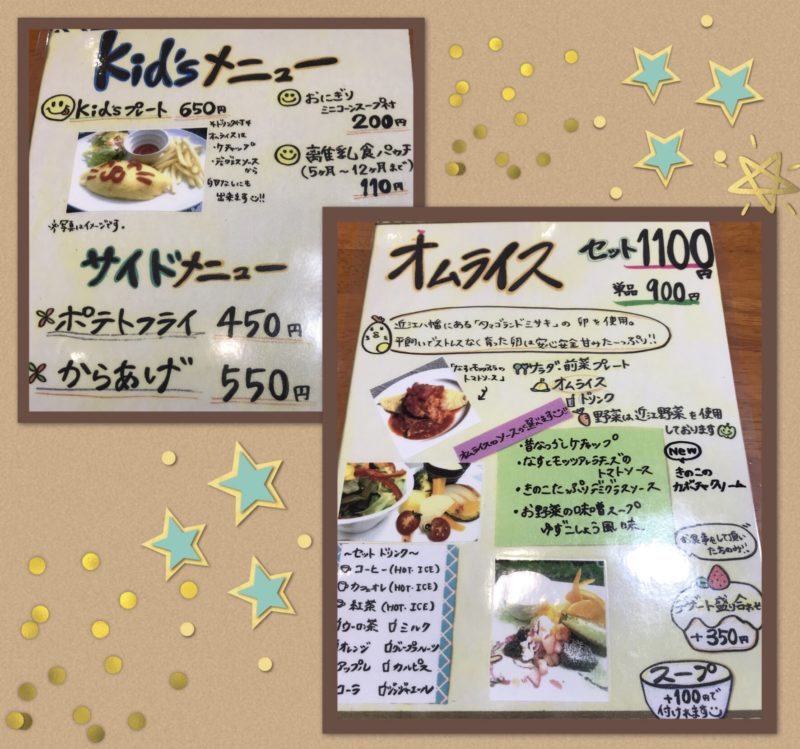 Kid'sメニュー
Kid'sプレート 650円
オムライスは
・ケチャップ
・デミグラスソース
から
出来ます!!
※写真はイメージです。
おにぎり
ミニコーンスープ付
200円
離乳食パウチ
(5ヶ月〜12ヶ月まで)
110円
サイドメニュー
ポテトフライ 450円
からあげ 550円
オムライス
セット1100円
単品 900円
近江八幡にある「タマゴランドミサキ」の卵を使用。
平飼いでストレスなく育った卵は安心安全甘みたーっぷり!!
「なすとモッツァレラの
トマトソース」
サラダ・前菜プレート
オムライス
ドリンク
野菜は近江野菜を使用
しております
オムライスのソースが選べます
・昔なつかしケチャップ
・なすとモッツァレラチーズの
トマトソース
・きのこたっぷりデミグラスソース
・お野菜の味噌スープ
ゆずこしょう風味
New
きのこの
カボチャクリーム
〜セットドリンク〜
コーヒー(HOT・ICE)
カフェオレ(HOT・ICE)
紅茶(HOT・ICE)
ウーロン茶 ミルク
オレンジ グレープフルーツ
アップル カルピス
コーラ ジンジャエール
お食事をして頂い
た方のみ!!
デザート盛り合わせ
+350円
スープ
+100円で
付けれます